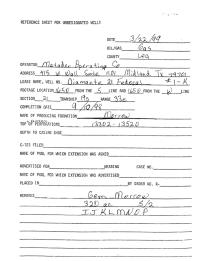 REFERENCE SHEET FOR UNDESIGNATED WELLS
DATE 3/22/99
OIL/GAS Gas
COUNTY Lea
OPERATOR Matador Operating Co
ADDRESS 415 W Wall Suite 1101 Midland Tx 79701
LEASE NAME, WELL NO. Diamante 21 Federal #1-K
FOOTAGE LOCATION 1650 FROM THE S LINE AND 1650 FROM THE W LINE
SECTION 21 TOWNSHIP 19S RANGE 33E
COMPLETION DATE 9/10/98
NAME OF PRODUCING FORMATION Morrow
TOP OF PERFORATIONS 13302-13520
DEPTH TO CASING SHOE
C-123 FILED
NAME OF POOL FOR WHICH EXTENSION WAS ASKED
ADVERTISED FOR HEARING CASE NO.
NAME OF POOL FOR WHICH EXTENSION WAS ADVERTISED
PLACED IN BY ORDER NO. R-
REMARKS Gem Morrow
320 ac S/2
I J K L M N O P